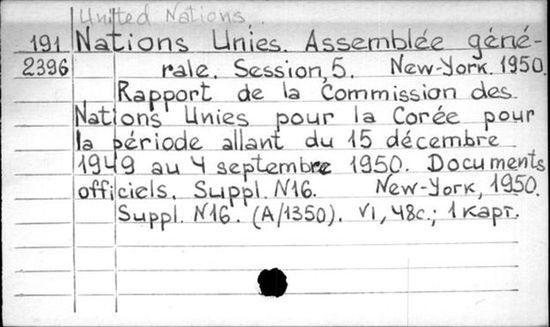 United Nations.
191 Nations Unies. Assemblée géné-
2396 rale. Session, 5. New-York. 1950
Rapport de la Commission des
Nations Unies pour la Corée pour
la période allant du 15 décembre
1949 au 4 septembre 1950. Documents
officiels. Suppl. N16. New-York, 1950.
Suppl. N16. (A/1350). VI, 48c.; 1 карт.